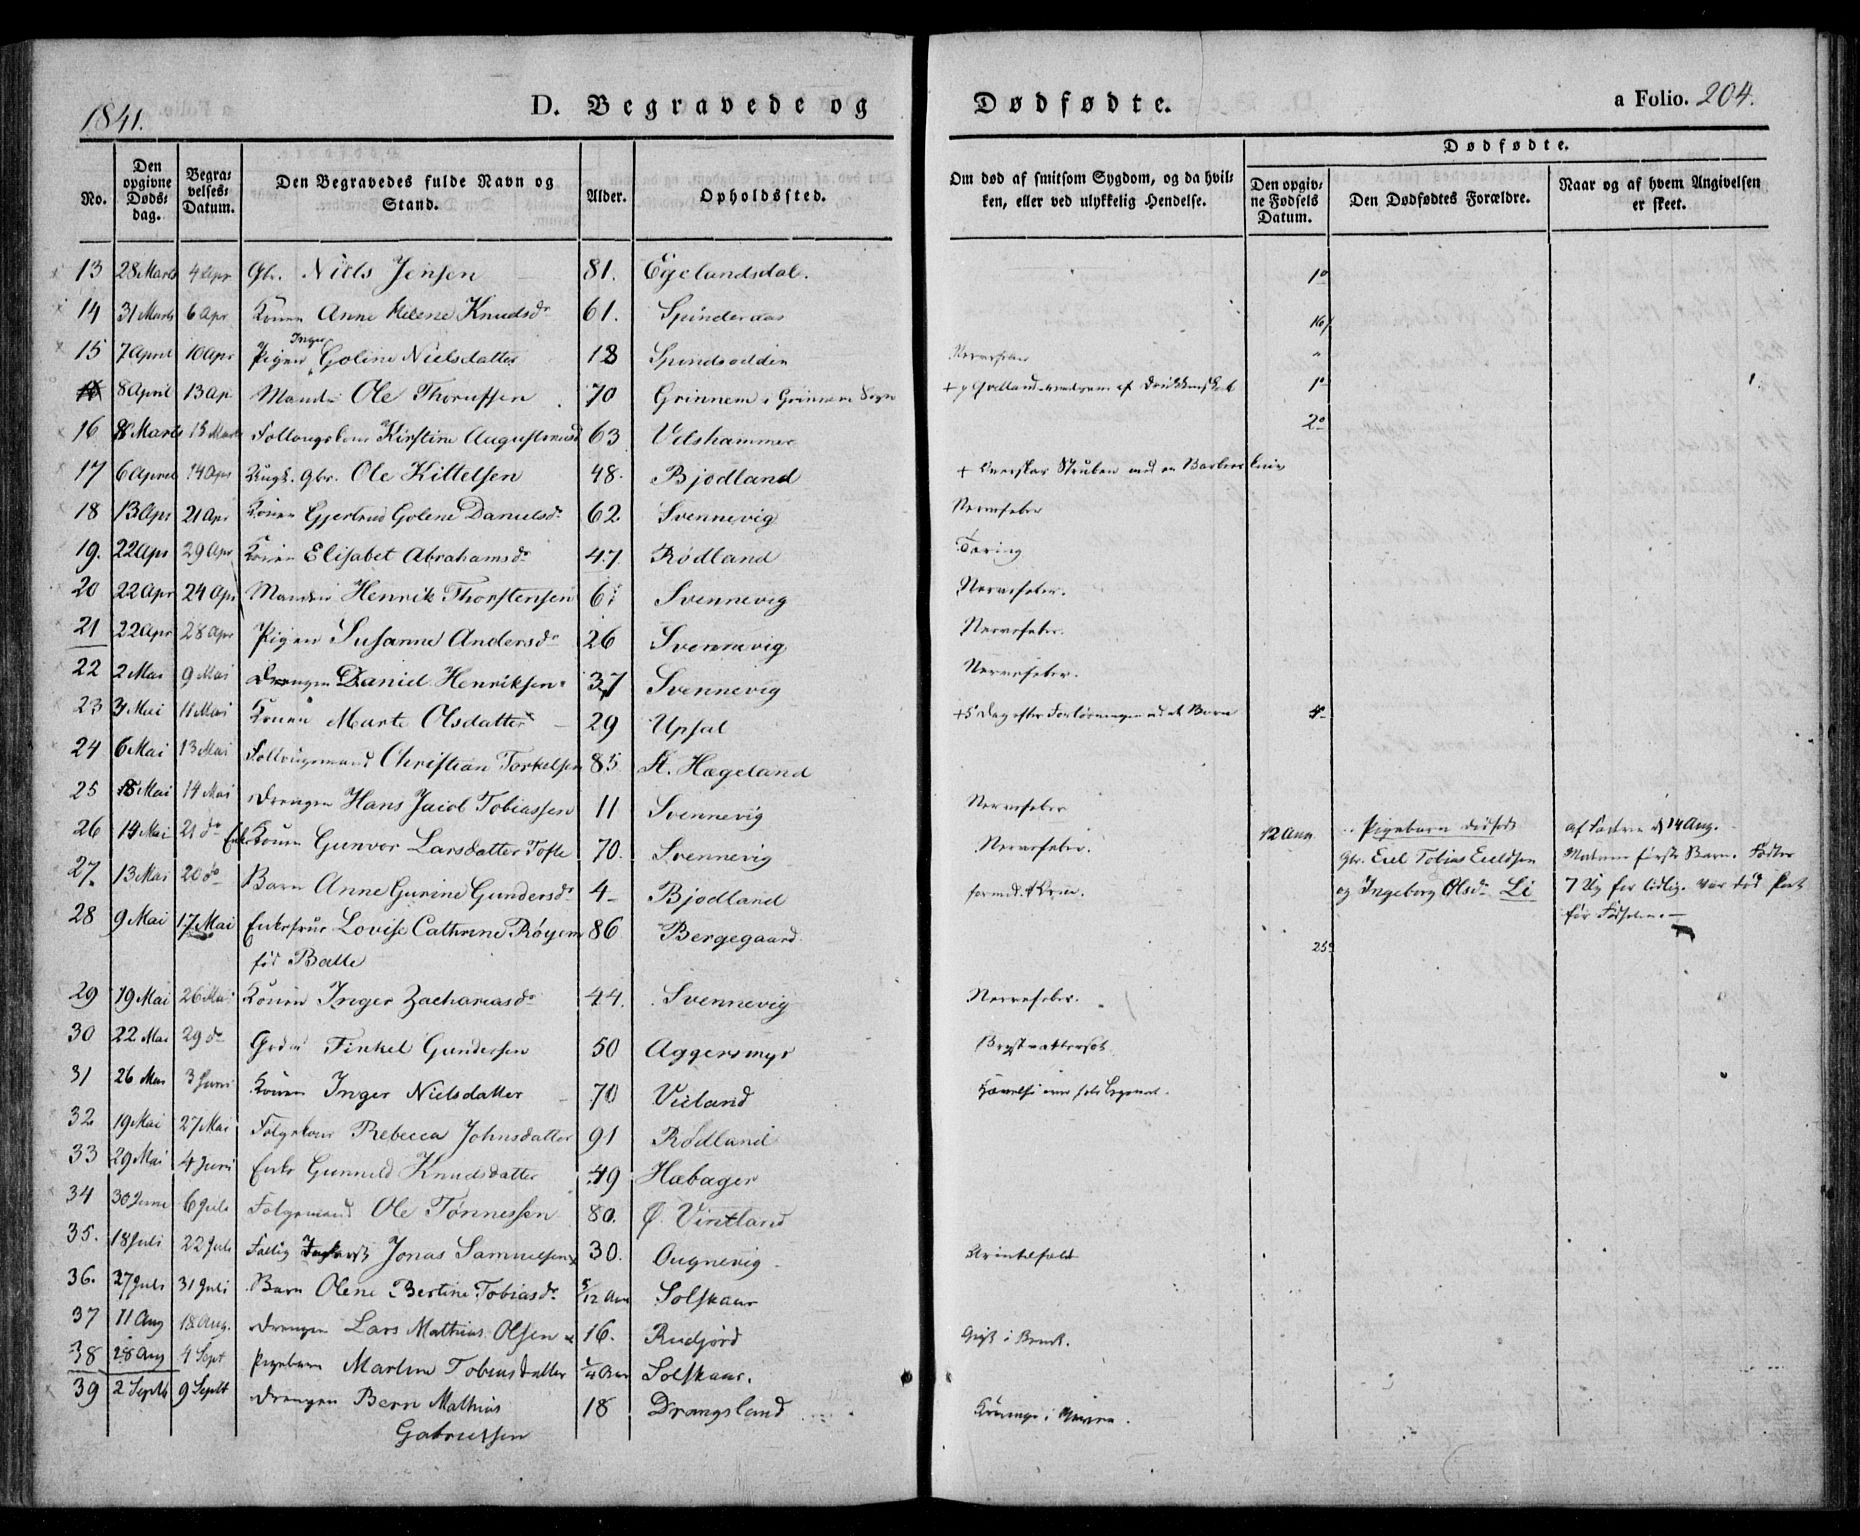 1841.
D. Begravede og Dødfødte.
a Folio. 204.
No.
Den opgivne Døds-dag.
Begra-velses-Datum.
Den Begravedes fulde Navn og Stand.
Alder.
Opholdssted.
Om død af smitsom Sygdom, og da hvil-ken, eller ved ulykkelig Hendelse.
Dødfødte.
Den opgiv-ne Fødsels Datum.
Den Dødfødtes Forældre.
Naar og af hvem Angivelsen er skeet.
13 28 Marts 4 Apr Gbr. Niels Jensen 81. Egelandsdal. 1
14 31 Marts 6 Apr Konen Anne Helene Knudsdr 61. Spinderaas
15 7 April 10 Apr Pigen Inger Goline Nielsdatter 18 Spindsodden Nervefeber
8 April 13 Ap Manden Ole Thorussen 70 Grinnem i Grinnem Sogn
16 8 Marts 15 Marts Kirstine Augustinusd 63 Udshammer 2
17 6 April 14 Apr Gbr. Ole Kittelsen 48. Bjodland + Overskar Struben med en Barbeerkniv
18 13 Apr 21 Apr Konen Gjertrud Golene Danielsdr 62 Svennevig Nervefeber
19. 22 Apr 29 Apr Konen Elisabet Abrahamsdr 47 Rødland Tæring
20 22 Apr 24 Apr Manden Henrik Thorstensen Svennevig Nervefeber.
21 22 Apr 28 Apr Pigen Susanne Andersdr 26 Svennevig Nervefeber.
22 2 Mai 9 Mai Drengen Daniel Henriksen 37 Svennevig Nervefeber.
23 3 Mai 11 Mai Konen Marte Olsdatter 29 Upsal + 5 Dag efter Forløsningen med et Barn
24 6 Mai 13 Mai Christian Torkelsen 85 St. Hægeland
25 8 Mai 14 Mai Drengen Hans Jacob Tobiassen 11 Svennevig Nervefeber
26 14 Mai 21 do Konen Gunvor Larsdatter Tofte 70. Svennevig Nervefeber.
12 Aug Pigebarn dødfødt
Gbr. Eeil Tobias Eeilssen
og Ingeborg Olsdr Li
af Faderen d 14 Aug.
første Barn. Fødtes
7 Ug for tidlig. var død
før Fødselen. —
27. 13 Mai 20 do Barn Anne Gurine Gundersdr 4 Bjodland
28 9 Mai 17 Mai Enkefrue Lovise Cathrine Røyem 86 Bergegaard 25
fød Balle
29 19 Mai 26 Mai Konen Inger Zachariasdr 44. Svennevig Nervefeber.
30 22 Mai 29 do Tinkel Gundersen 50 Aggersmyr Brystvattersot
31 26 Mai 3 Juni Konen Inger Nielsdatter 70 Vieland
32 19 Mai 27 Mai Rebecca Johnsdatter 91 Rødland
33 29 Mai 4 Juni Enke Gunnild Knudsdatter 49 Hæbager
34 30 Juni 6 Juli Folgemand Ole Tønnessen 80. Ø. Vintland
35. 18 Juli 22 Juli Jonas Samuelsen 30. Ougnevig
36. 27 Juli 31 Juli Barn Olene Bertine Tobiasdr 5/12 Aar Solskaar
37 11 Aug 18 Aug. Drengen Lars Mathias Olsen 16. Rudjord Gigt i Bryst.
38 28 Aug 4 Sept Pigebarn Martine Tobiasdatter Solskaar.
39 2 Septb 9 Septb Drengen Bern Mathias 18 Drangsland
Gabrielsen